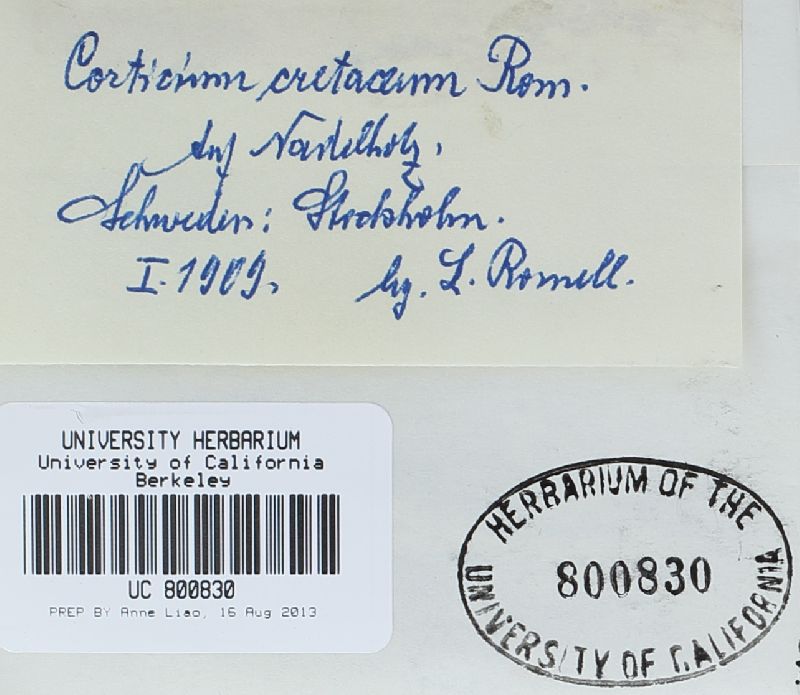 Corticium cretaceum Rom.
Auf Nadelholz.
Schweden: Stockholm.
I. 1909. lg. L. Romell.
UNIVERSITY HERBARIUM
University of California
Berkeley
UC 800830
PREP BY Anne Liao, 16 Aug 2013
HERBARIUM OF THE
800830
UNIVERSITY OF CALIFORNIA